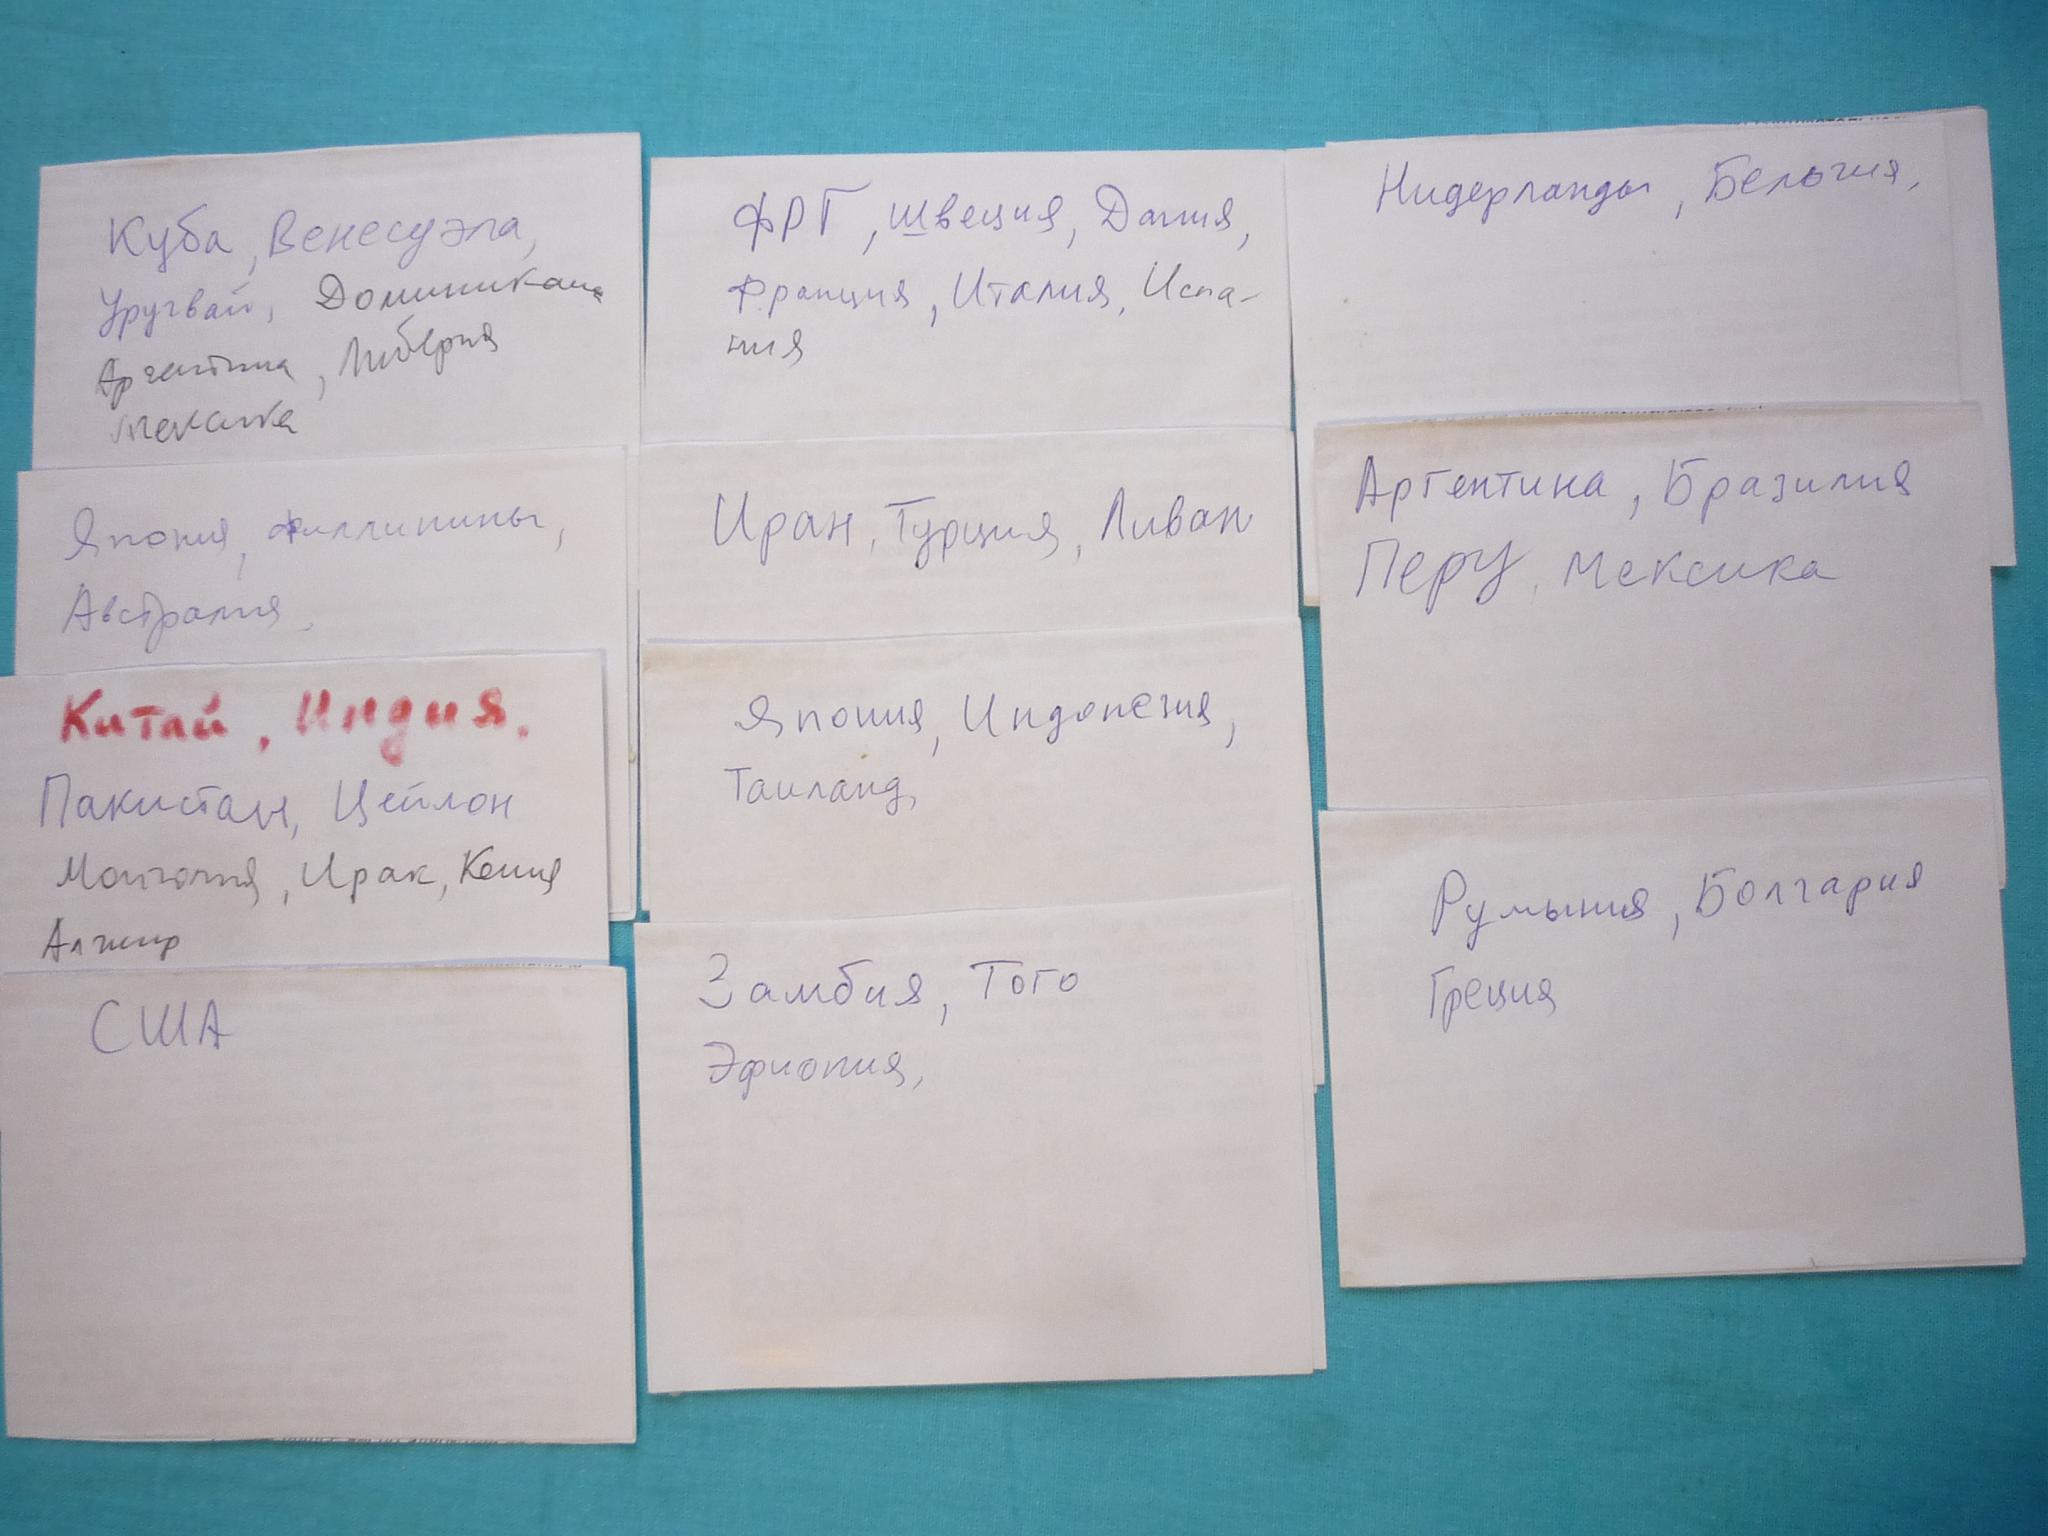 Куба, Венесуэла,
Уругвай, Доминикана
Аргентина, Либерия
Мексика
Япония, Филлипины,
Австралия,
Китай, Индия,
Пакистан, Цейлон
Монголия, Ирак, Кения
Алжир
США
ФРГ, Швеция, Дания,
Франция, Италия, Испа-
ния
Иран, Турция, Ливан
Япония, Индонезия,
Таиланд,
Замбия, Того
Эфиопия,
Нидерланды, Бельгия,
Аргентина, Бразилия
Перу, Мексика
Румыния, Болгария
Греция